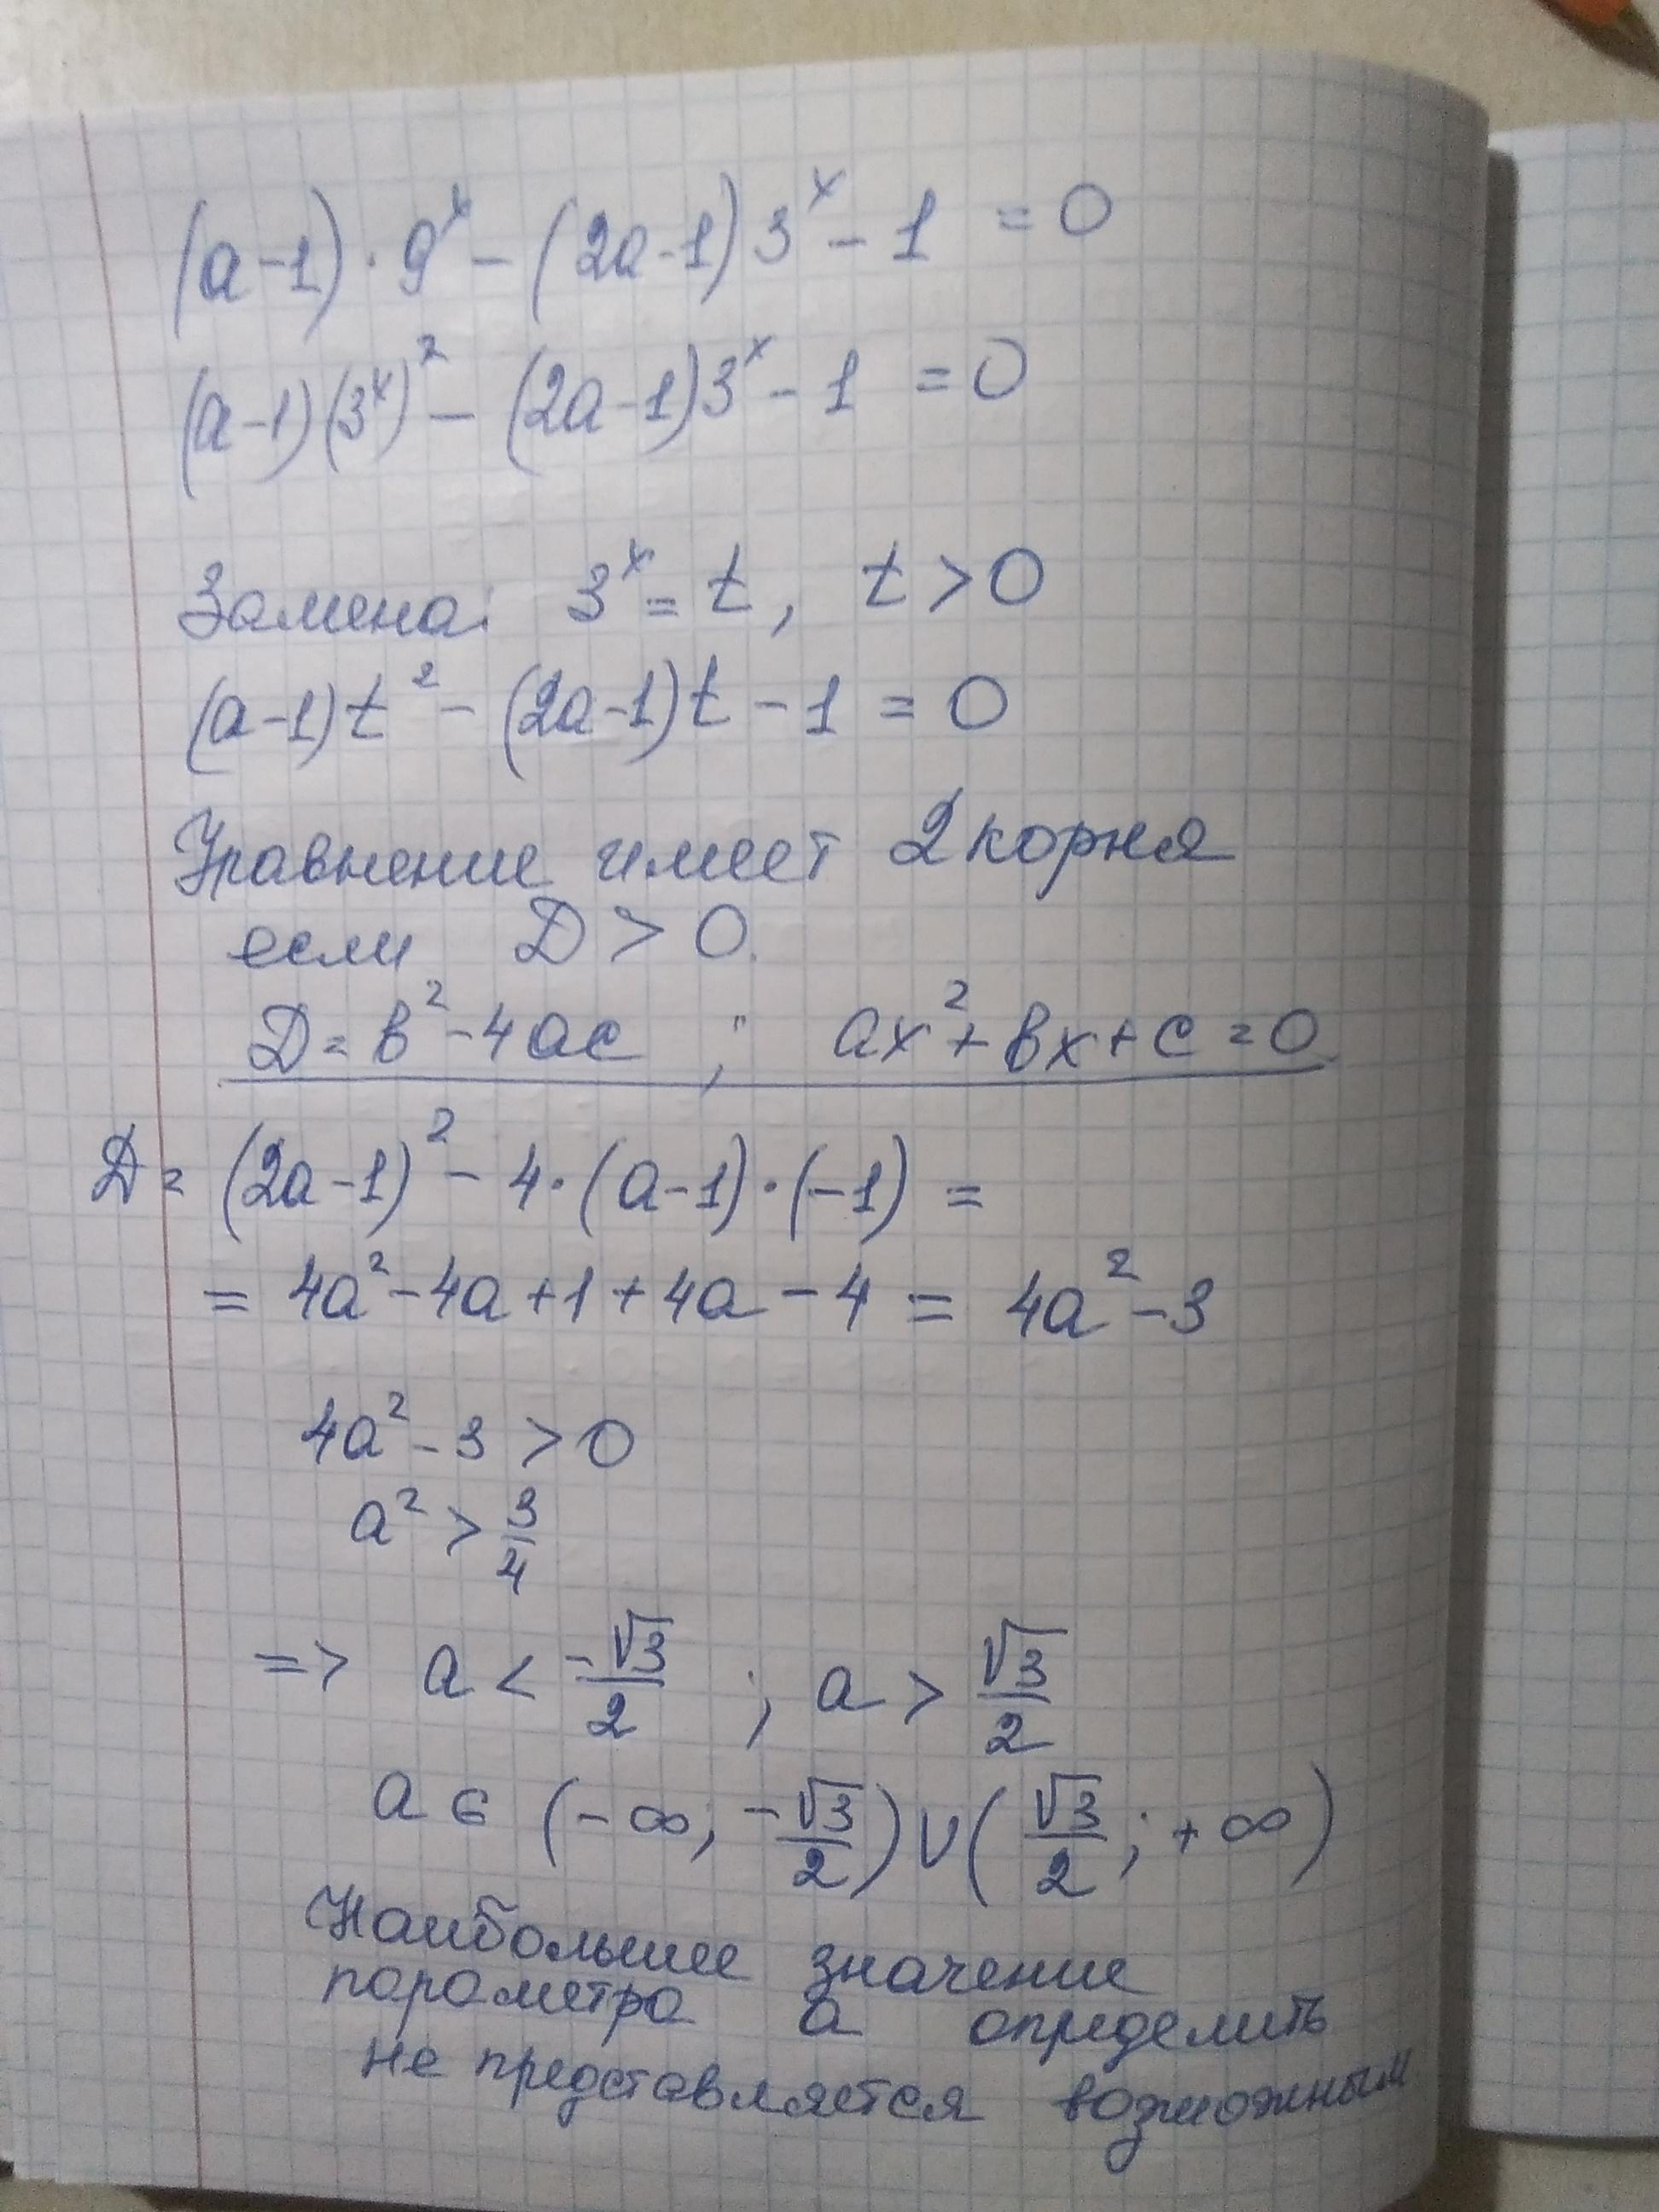 (a-1)·9ˣ - (2a-1)3ˣ - 1 = 0
(a-1)(3ˣ)² - (2a-1)3ˣ - 1 = 0
Замена: 3ˣ = t, t > 0
(a-1)t² - (2a-1)t - 1 = 0
Уравнение имеет 2 корня
если D > 0.
D = в² - 4ac ; ax² + вx + c = 0
D = (2a-1)² - 4·(a-1)·(-1) =
= 4a² - 4a + 1 + 4a - 4 = 4a² - 3
4a² - 3 > 0
a² > 3/4
=> a < -√3/2 ; a > √3/2
a ∈ (-∞; -√3/2) ∪ (√3/2; +∞)
Наибольшее значение
параметра а определить
не представляется возможным